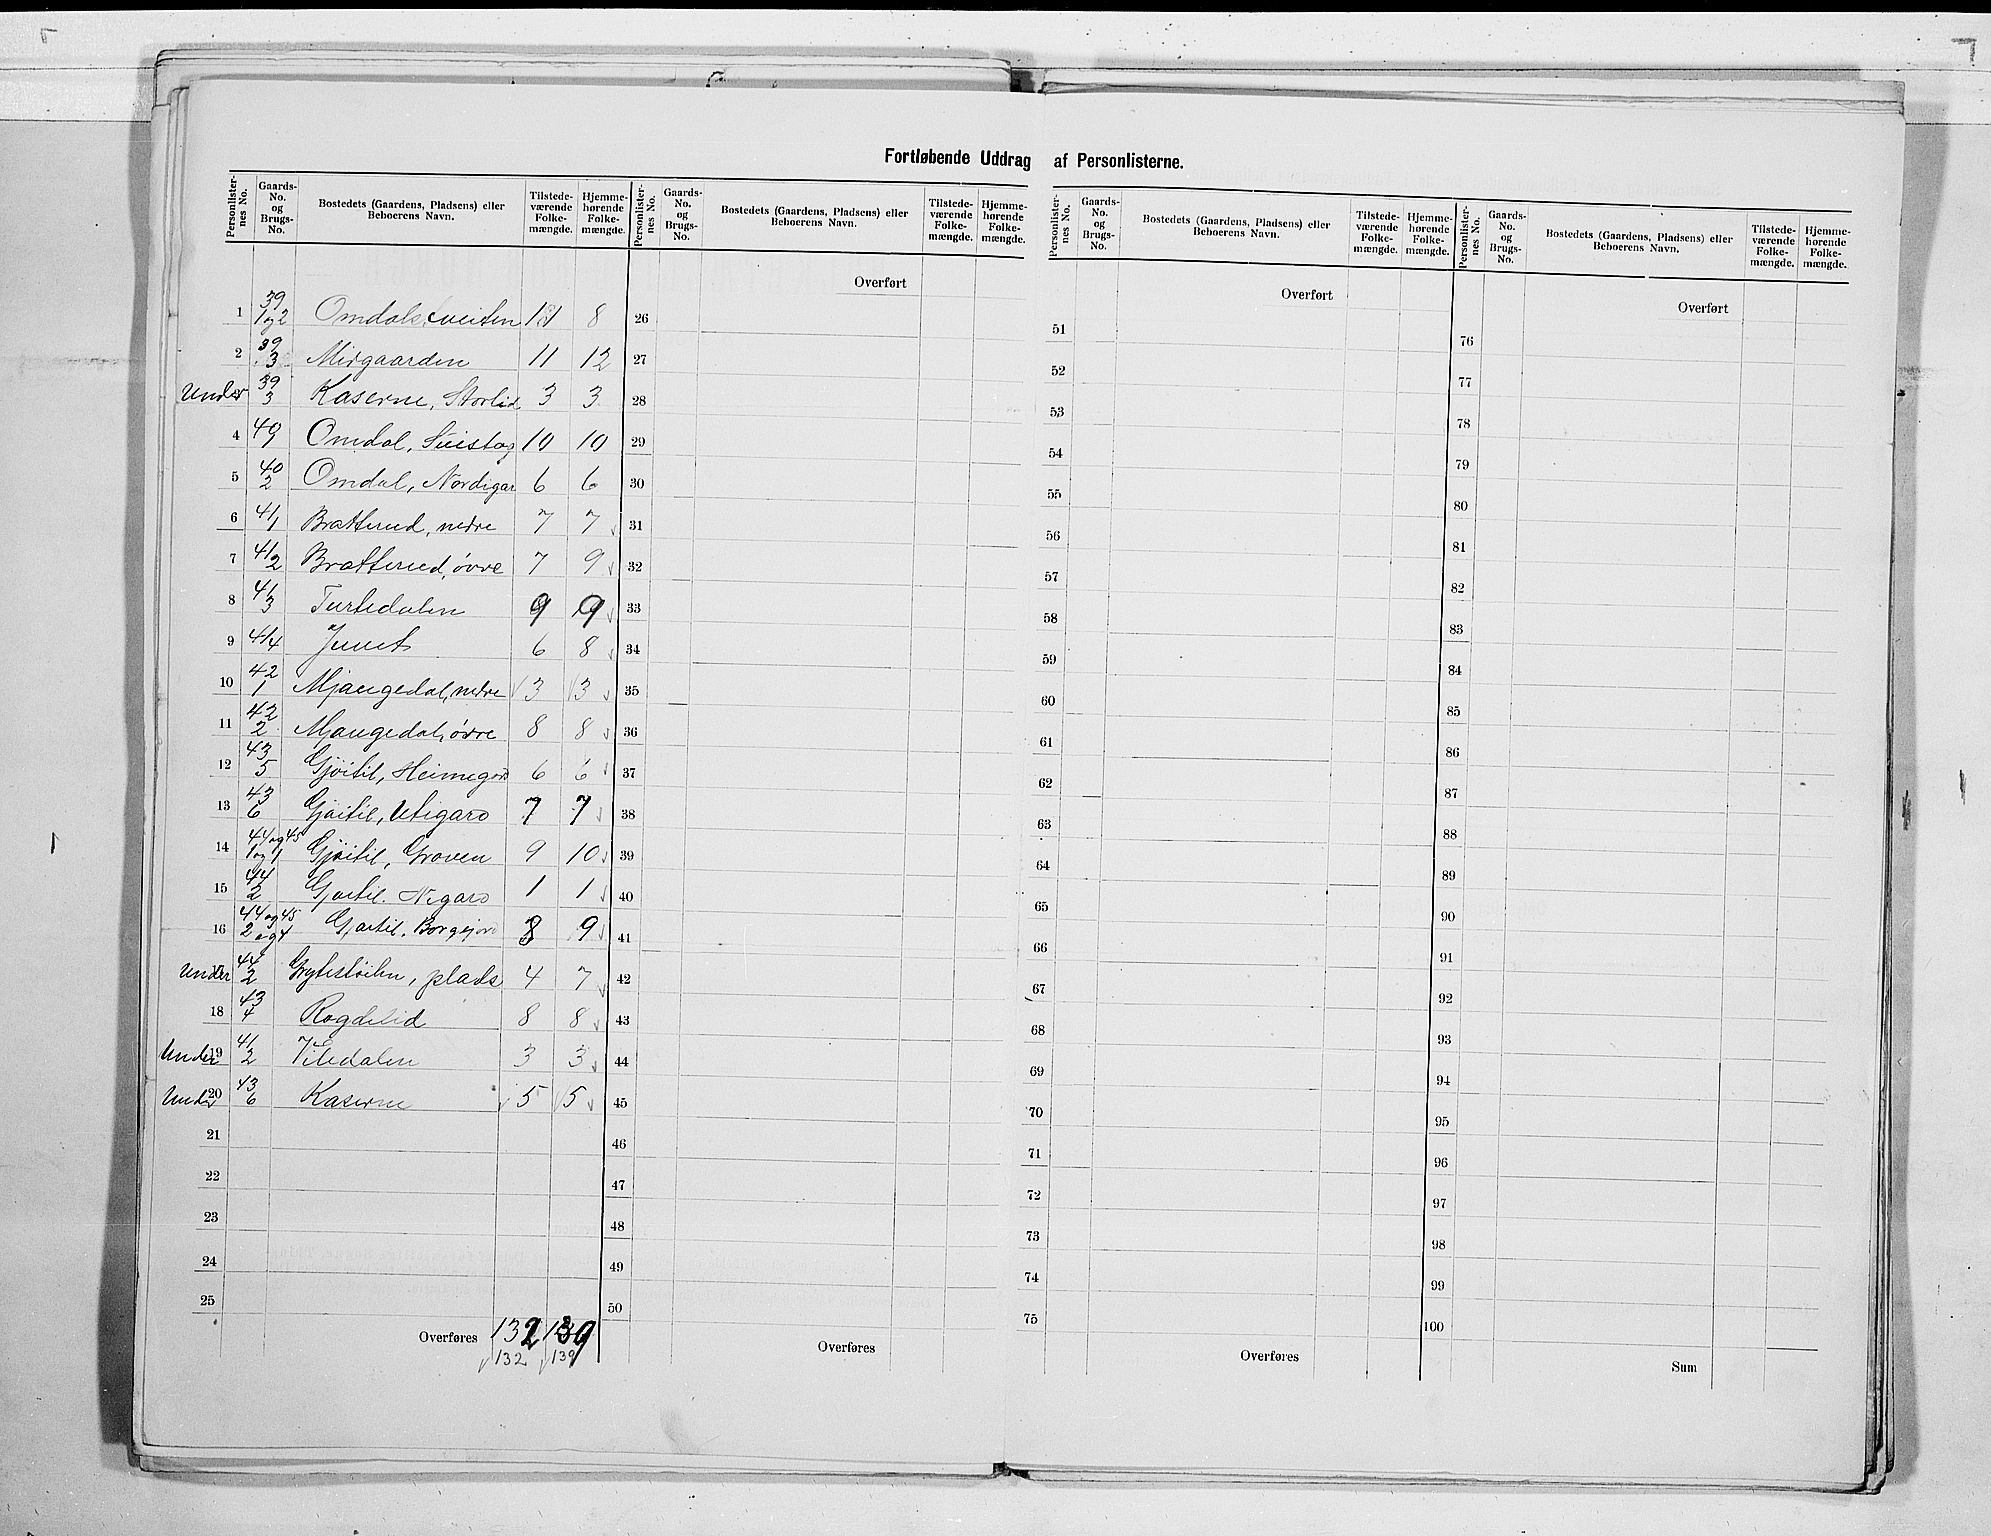 Fortløbende Uddrag af Personlisterne.
Personlister-nes No. Gaards-No. og Brugs-No. Bostedets (Gaardens, Pladsens) eller Beboerens Navn. Tilstede-værende Folke-mængde. Hjemme-hørende Folke-mængde.
1 39 1og2 Omdalsveiten 11 8
2 39 3 Midgaarden 11 12
Under 39 3 Kaserne, Storlid 3 3
4 40 1 Omdal, 10 10
5 40 2 Omdal, Nordigar 6 6
6 41/1 Bratterud, nedre 7 7
7 41/2 Bratterud, øvre 7 9
8 41/3 Turtedalen 9 9
9 41/4 Juvet 6 8
10 42 1 Mjaugedal, nedre 3 3
11 42 2 Mjaugedal, øvre 8 8
12 43 5 Gjøitil, Heimegard 6 6
13 43 6 Gjøitil, Utigard 7 7
14 44og45 1og1 Gjøitil, Groven 9 10
15 44 2 Gjøitil. Nigard 1 1
16 44og45 2og4 Gjøitil. Borgejord 8 9
Under 17 44 2 Grytestøilen, plads 4 7
18 43 4 Rogdelid 8 8
Under 19 41 2 Viledalen 3 3
Under 20 43 6 Kaserne 5 5
21
22
23
24
25
Overføres 132 139
132 139
Personlister-nes No. Gaards-No. og Brugs-No. Bostedets (Gaardens, Pladsens) eller Beboerens Navn. Tilstede-værende Folke-mængde. Hjemme-hørende Folke-mængde.
Overført
26
27
28
29
30
31
32
33
34
35
36
37
38
39
40
41
42
43
44
45
46
47
48
49
50
Overføres
Personlister-nes No. Gaards-No. og Brugs-No. Bostedets (Gaardens, Pladsens) eller Beboerens Navn. Tilstede-værende Folke-mængde. Hjemme-hørende Folke-mængde.
Overført
51
52
53
54
55
56
57
58
59
60
61
62
63
64
65
66
67
68
69
70
71
72
73
74
75
Overføres
Personlister-nes No. Gaards-No. og Brugs-No. Bostedets (Gaardens, Pladsens) eller Beboerens Navn. Tilstede-værende Folke-mængde. Hjemme-hørende Folke-mængde.
Overført
76
77
78
79
80
81
82
83
84
85
86
87
88
89
90
91
92
93
94
95
96
97
98
99
100
Sum